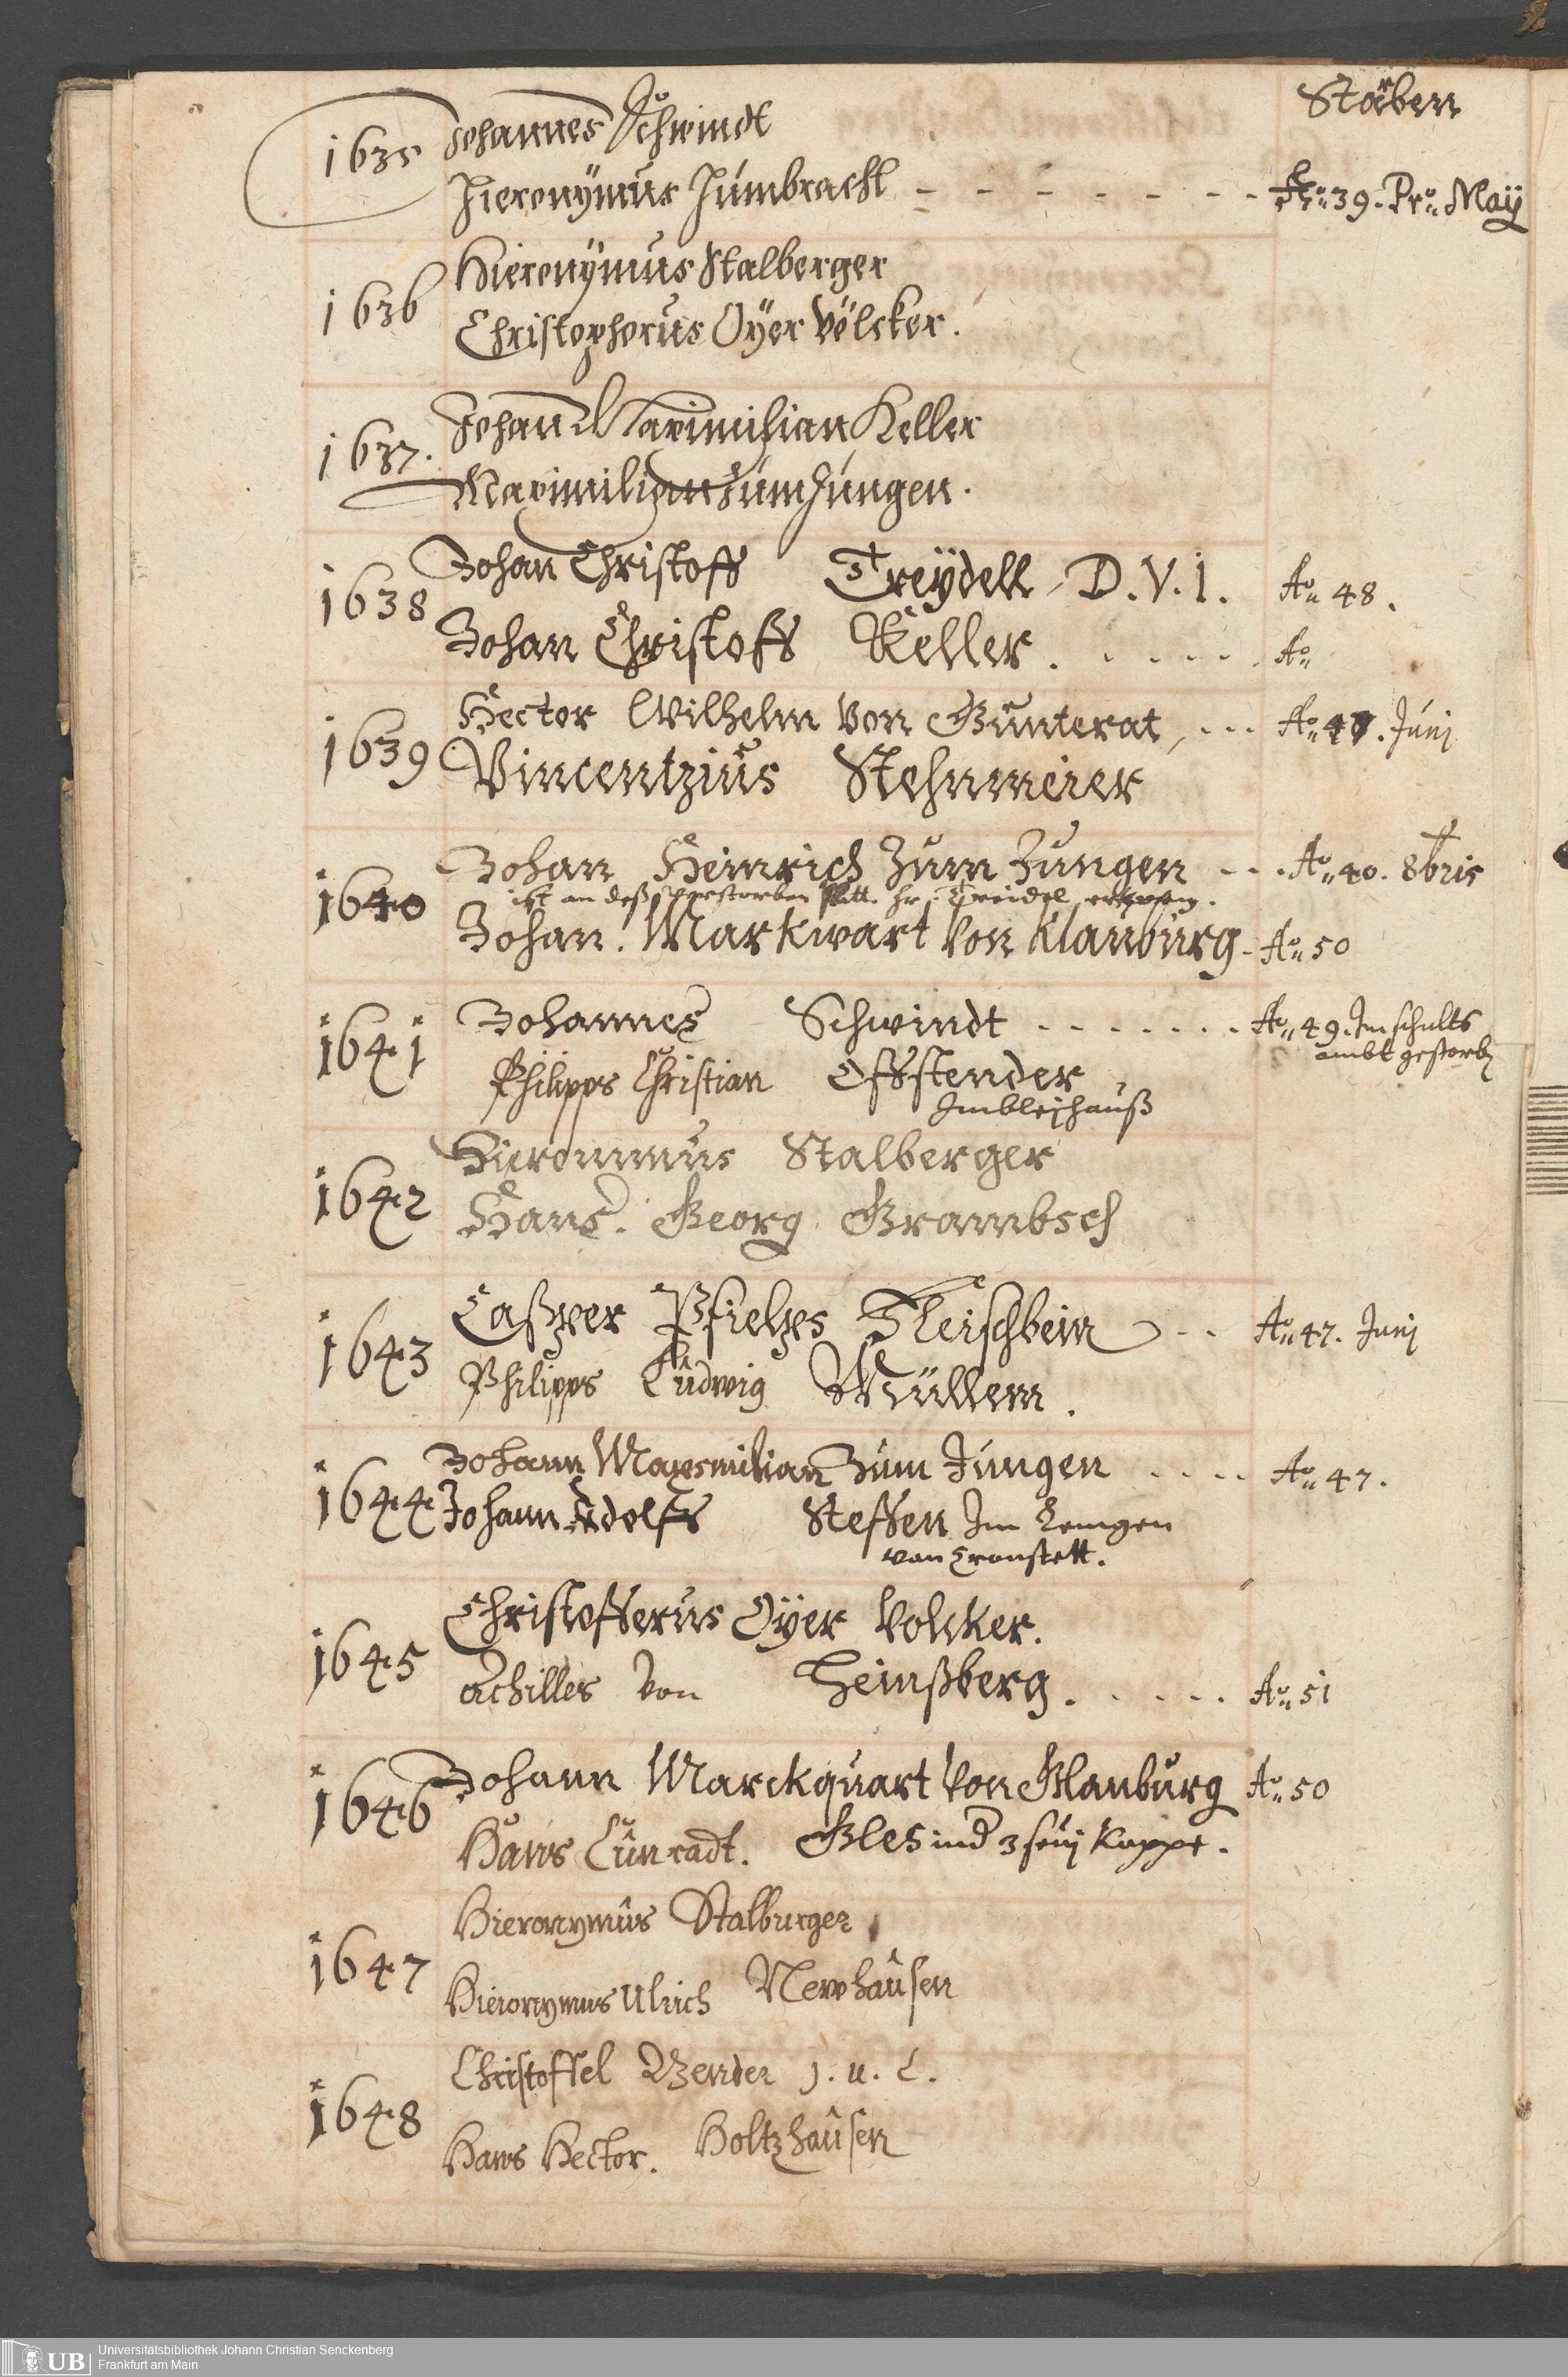 Starben
1635 Johannes Schwindt
Hieronÿmus Humbracht - - - - - - - Ao. 39. Pr. Maÿ
1636 Hieronÿmus Stalberger
Christophorus Oÿer Völcker.
1637. Johan Maximilian Keller
Maximilian Zum Jungen.
1638 Johan Christoff Treÿdell D.V.I. Ao 48.
Johan Christoff Keller. . . . . . Ao
1639 Hector Wilhelm Von Günterat, . . . Ao 47. Junj
Vincentzius Stehnmeier
1640 Johan Heinrich Zum Jungen . . . Ao 40. 8bris
ist an deß gestorben Statt Hr. Treidel
Johan Markwart Von Klauburg - Ao 50
1641 Johannes Schwindt . . . . . . . Ao 49. Im schults
ambt gestorb
Philipps Christian Offstender
Im bleyhauß
1642 Hieronimus Stalberger
Hans Georg Grambsch
1643 Caßper Pfielps Fleischbein . . Ao 47. Junj
Philipps Ludwig Müllem.
1644 Johann Maxsmilian Zum Jungen . . . . Ao 47.
Johann Adolff Steffen Im Lemgen
van Cronstett.
1645 Christofferus Oÿer Volcker.
Achilles von Heinßberg. . . . . Ao 51
1646 Johann Marckquart Von Glauburg Ao 50
Hans Cunradt. Gles ind 3 seuj Kappe.
1647 Hieronymus Stalburger
Hieronymus Ulrich Newhausen
1648 Christoffel Bender J. u. L.
Hans Hector. Holtzhausen
UB Universitätsbibliothek Johann Christian Senckenberg
Frankfurt am Main